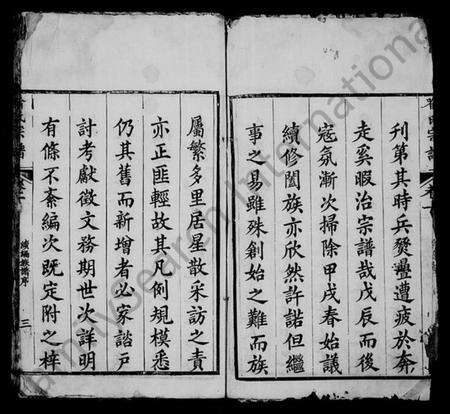 刊第其時兵燹疊遭疲於奔
走奚暇治宗譜哉戊辰而後
寇氛漸次掃除甲戌春始議
續修闔族亦欣然許諾但繼
事之易雖殊創始之難而族
屬繁多里居星散采訪之責
亦正匪輕故其凡例規模悉
仍其舊而新增者必家諮戶
討考獻徵文務期世次詳明
有條不紊編次既定附之梓
氏宗譜
三
FamilySearch International